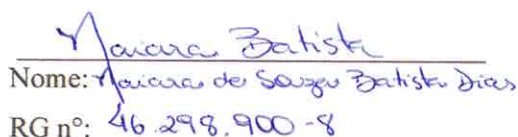 Naiara Batista
Nome: Naiara de Souza Batista Dias
RG nº: 46.298.900-8